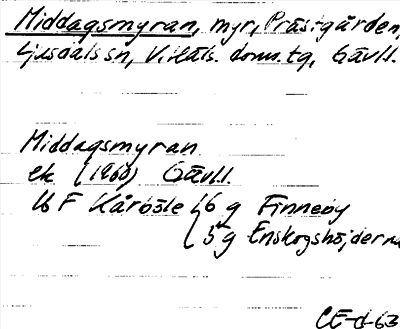 Middagsmyran, myr, Prästgården,
Ljusdals sn, V. Häls. doms.tg, Gävl.l.
Middagsmyran
ek (1960) Gävl.l.
16 F Kårböle 6 g Finneby
5 g Enskogshöjderna
CE-d-63